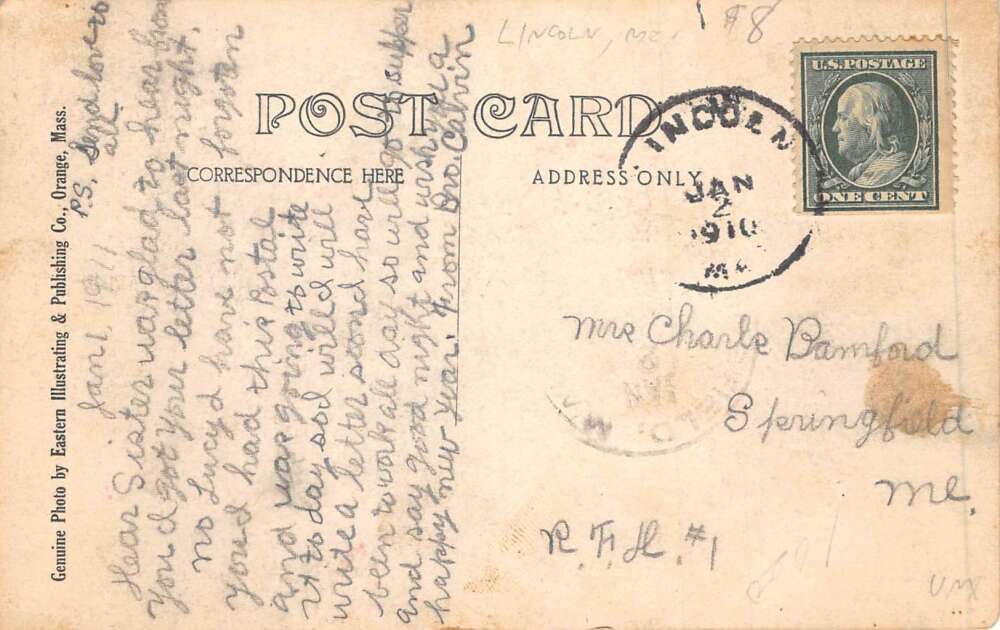 LINCOLN, ME.
$8
POST CARD
CORRESPONDENCE HERE
ADDRESS ONLY
U.S. POSTAGE
ONE CENT
LINCOLN
JAN
2
1910
ME
Genuine Photo by Eastern Illustrating & Publishing Co., Orange, Mass.
P.S. Send love to
all
Jan 1, 1911
Dear Sister was glad to hear from
you d got your letter last night.
no Lucy d have not forgoten
you d had this Postal
and was going to write
it to day so d will d will
write a letter soon d have
ben to work all day so will go to supper
and say good night and wish you a
happy new year. From Bro. Calvin
Mrs Charle Bamford
Springfield
Me.
R. F. D. #1